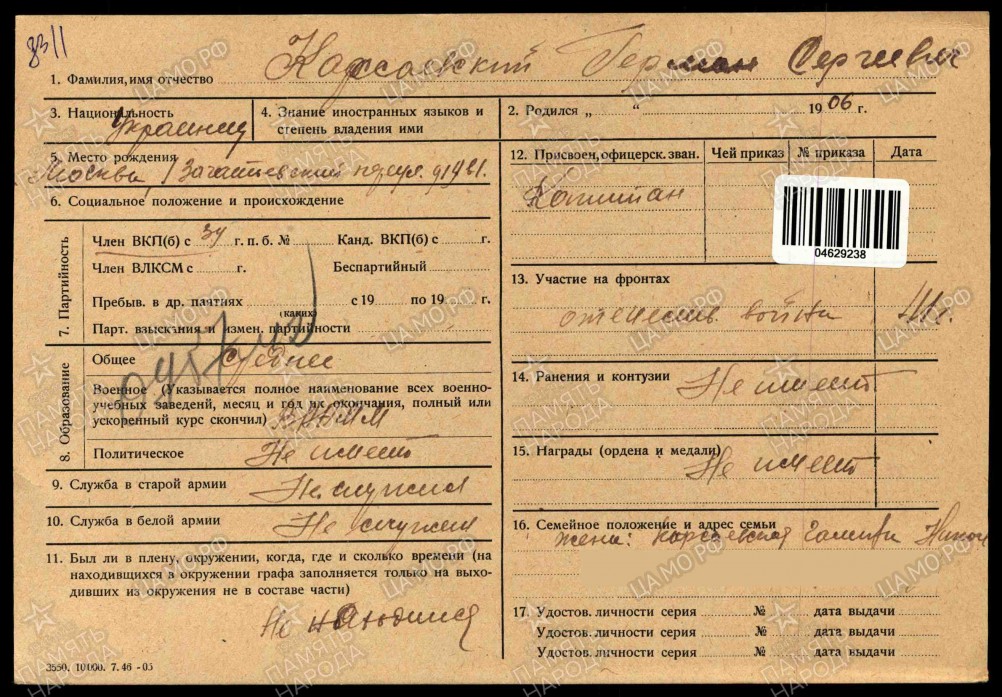 3311
1. Фамилия, имя отчество Карсаевский Герман Сергеевич
3. Национальность Украинец
4. Знание иностранных языков и степень владения ими
2. Родился „ “ 1906 г.
5. Место рождения Москва, Зачатьевский
6. Социальное положение и происхождение
7. Партийность
Член ВКП(б) с 34 г. п. б. № Канд. ВКП(б) с г.
Член ВЛКСМ с г. Беспартийный
Пребыв. в др. партиях с 19 по 19 г.
(каких)
Парт. взыскания и измен. партийности
8. Образование
Общее Среднее
Военное (Указывается полное наименование всех военно-
учебных заведений, месяц и год их окончания, полный или
ускоренный курс скончил)
Политическое Не имеет
9. Служба в старой армии Не служил
10. Служба в белой армии Не служил
11. Был ли в плену, окружении, когда, где и сколько времени (на
находившихся в окружении графа заполняется только на выхо-
дивших из окружения не в составе части)
Не находился
3550. 10000. 7.46 -05
12. Присвоен, офицерск. зван. Чей приказ № приказа Дата
Капитан
04629238
13. Участие на фронтах
отечествен. войны
14. Ранения и контузии Не имеет
15. Награды (ордена и медали) Не имеет
16. Семейное положение и адрес семьи
жена: Карсаевская
17. Удостов. личности серия № дата выдачи
Удостов. личности серия № дата выдачи
Удостов. личности серия № дата выдачи
ПАМЯТЬ НАРОДА
ЦАМО.РФ